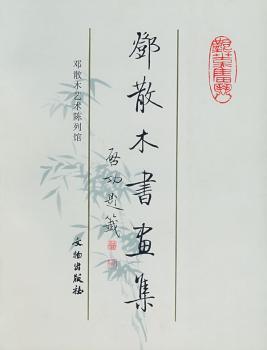 鄧散木書畫集
啓功題籤
邓散木艺术陈列馆
文物出版社